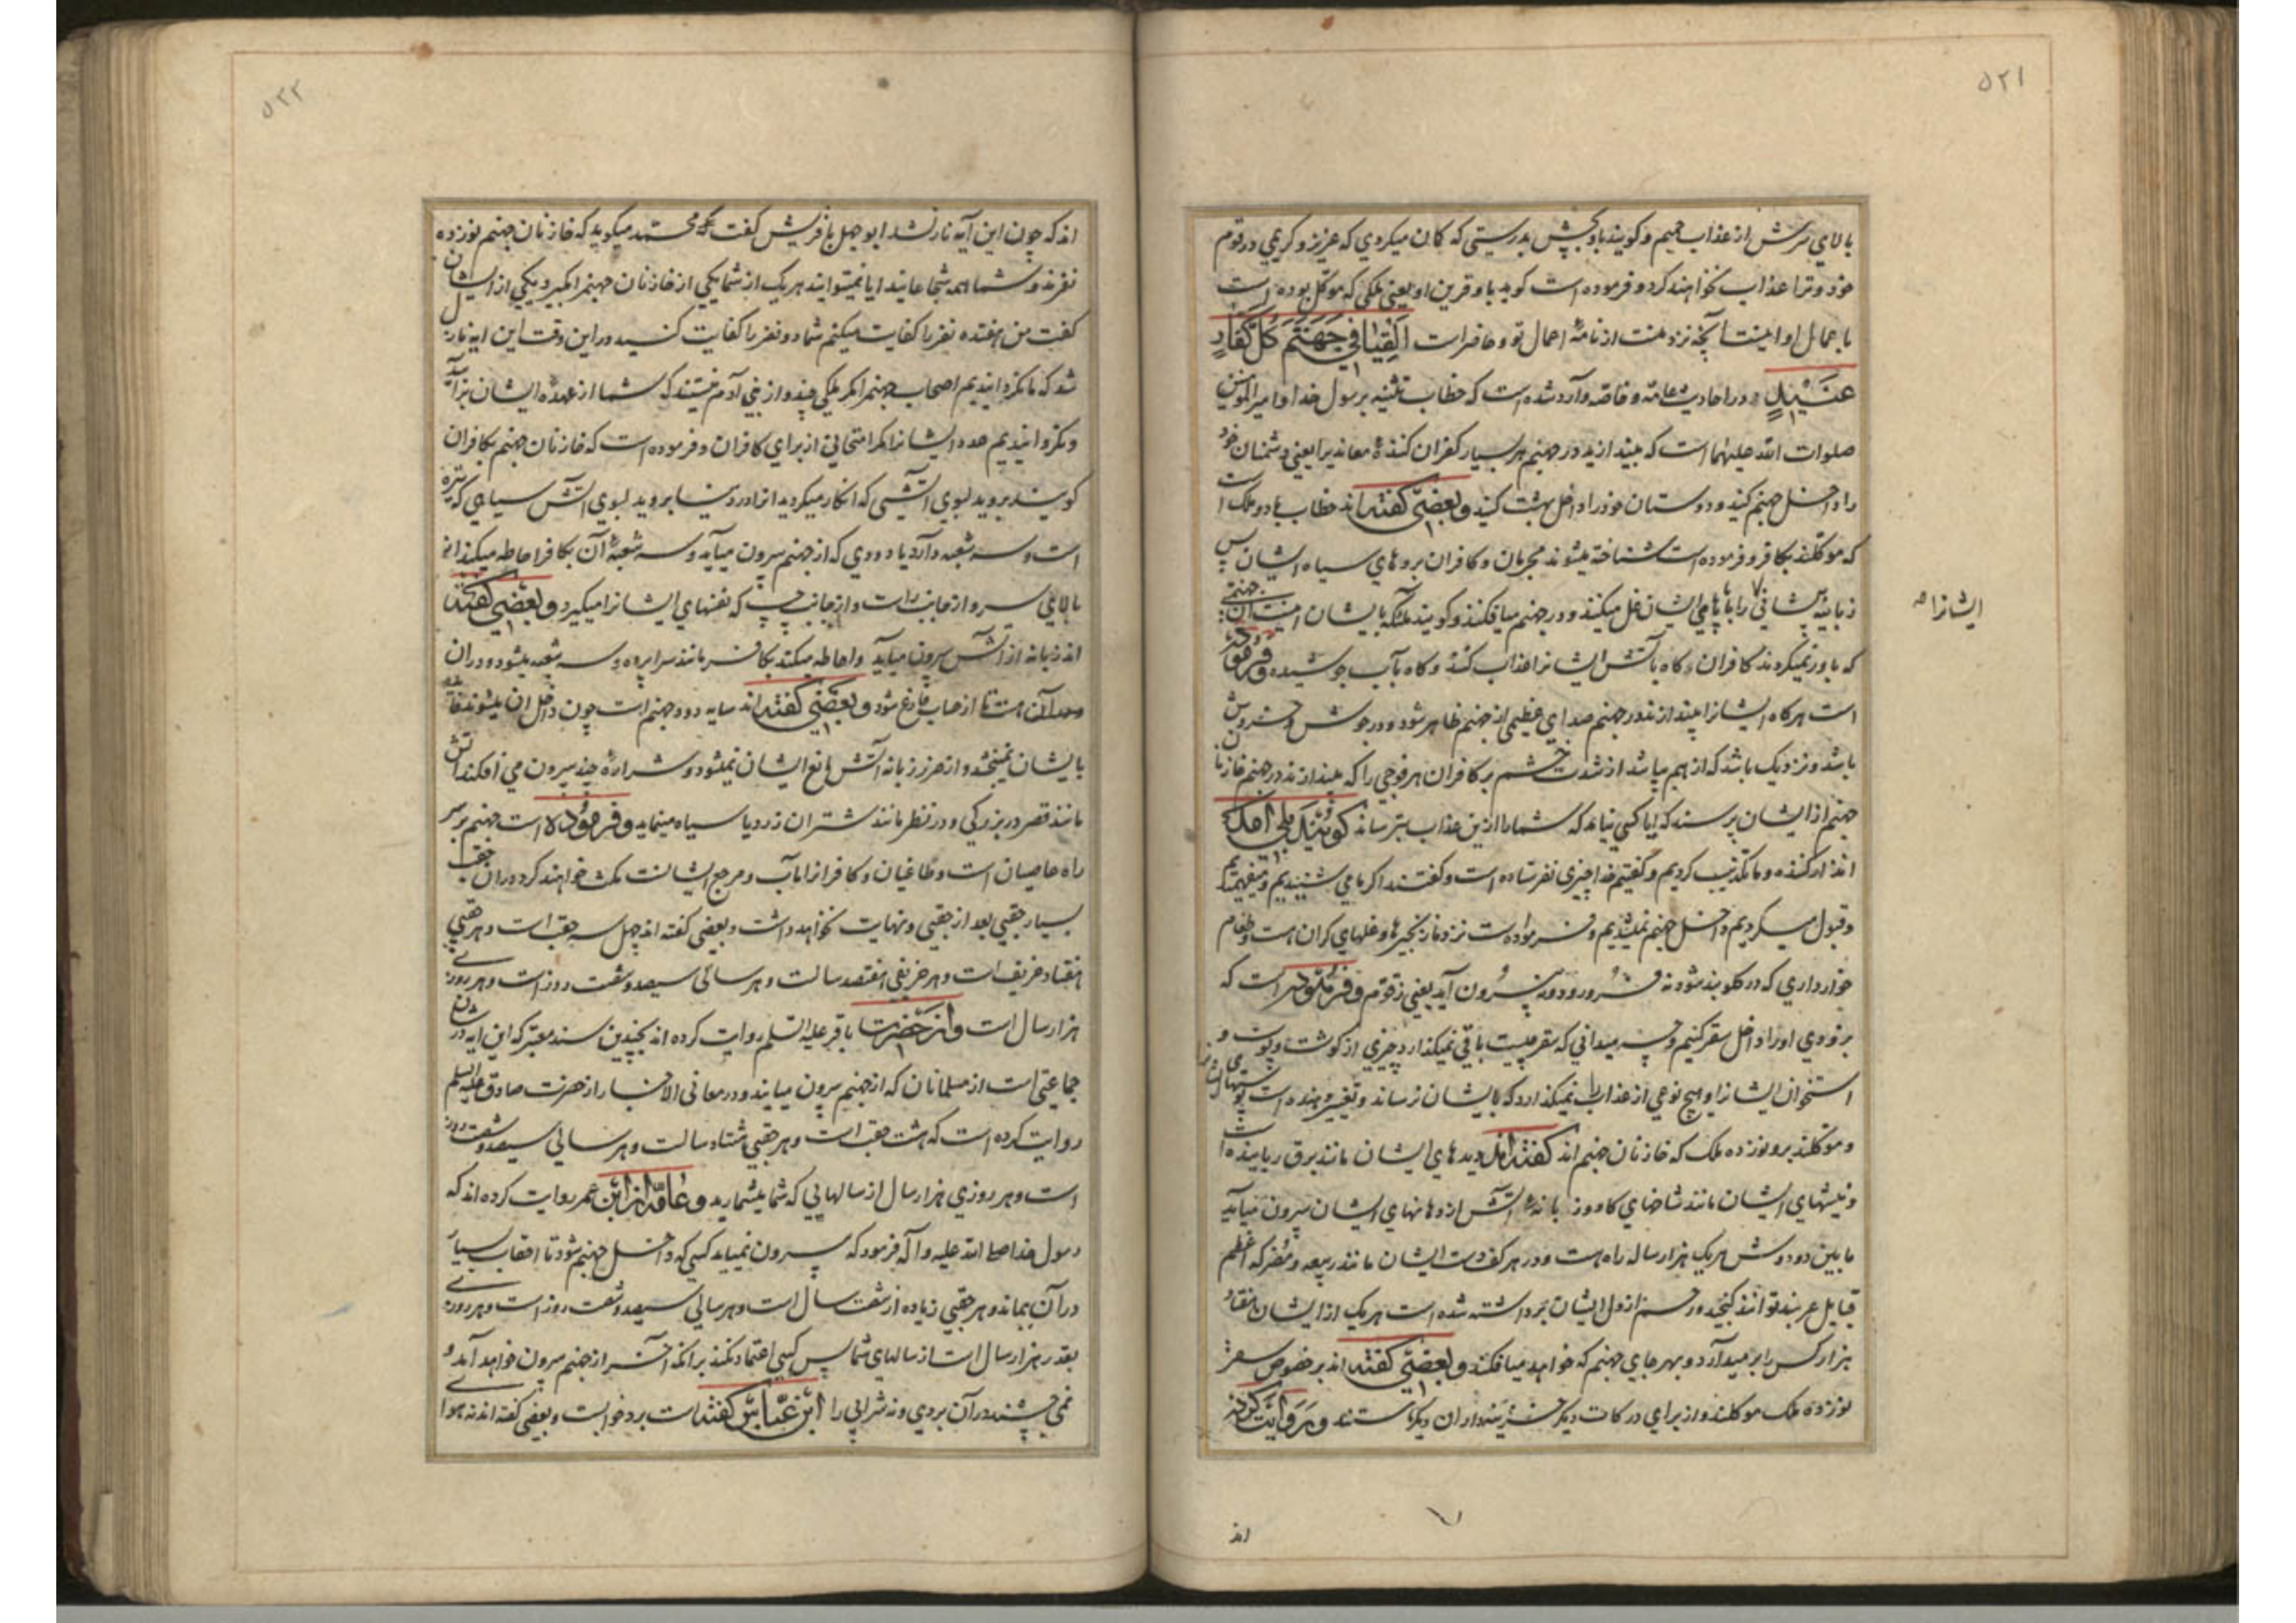 ٥٢١
بالای سرش از عذاب حمیم و کویند باو بچش بدرستی که کان میکردی که عزیز و کریمی در قوم
خود و ترا عذاب نخواهند کرد و فرموده است کوید باو قرین او یعنی ملکی که موکل بوده است
باعمال او اینست آنچه نزد منست از نامهٔ اعمال تو و حاضر است اَلْقِیٰا فی جَهَنَّمَ کُلَّ کَفّٰارٍ
عَنیٖدٍ و در احادیث عامه و خاصه وارد شده است که خطاب تثنیه برسول خدا و امیر المومنین
صلوات الله علیهما است که بیندازید در جهنم هر بسیار کفران کنندهٔ معاندیرا یعنی دشمنان خود
را داخل جهنم کنید و دوستان خود را داخل بهشت کنید و بعضی کفته اند خطاب بادو ملک است
که موکلند بکافر و فرموده است شناخته میشوند مجرمان و کافران بروهای سیاه ایشان پس
زبانیه پیشانی را با پاهای ایشان غل میکنند و در جهنم میافکنند و کویند ملئکه بایشان اینست آن جهنمی
ایشانرا صه
که باور نمیکردند کافران و کاه بآتش ایشانرا عذاب کنند و کاه بآب جوشیده و فرموده
است هرکاه ایشانرا بیندازند در جهنم صدای عظیمی از جهنم ظاهر شود و در جوش و خروش
باشد و نزدیک باشد که از هم بپاشد از شدت خشم بر کافران هر فوجی را که بیندازند در جهنم خازنان
جهنم از ایشان پرسند که ایا کسی نیامد که شما را ازین عذاب بترساند کویند بلی آمد
انذار کننده و ما تکذیب کردیم و کفتیم خدا چیزی نفرستاده است و کفتند اکر ما می شنیدیم و میفهمیدیم
و قبول میکردیم داخل جهنم نمیشدیم و فرموده است نزد ما زنجیرها و غلهای کران هست و طعام
خوارداری که در کلو بند شود نه فرو رود و نه بیرون آید یعنی زقوم و فرموده است که
بزودی او را داخل سقر کنیم و چه میدانی که سقر چیست باقی نمیکذارد چیزی از کوشت و پوست و
استخوان ایشانرا و هیچ نوعی از عذاب را نمیکذارد که بایشان نرساند و تغییر دهنده است پوستهای ایشانرا
و موکلند برو نوزده ملک که خازنان جهنم اند کفته اند دیدهای ایشان مانند برق رباینده است
و نیشهای ایشان مانند شاخهای کاو و زبانهٔ آتش از دهانهای ایشان بیرون میآید
مابین دو دوش هریک هزار ساله راه است و در هر کف دست ایشان مانند ربیعه و مضر که اعظم
قبایل عربند توانند کنجید و رحم از دل ایشان برداشته شده است هریک از ایشان هفتاد
هزار کس را برمیدارد و بهر جای جهنم که خواهد میافکند و بعضی کفته اند بر خصوص سقر
نوزده ملک موکلند و از برای درکات دیکر خزینه داران دیکر هستند و روایت کرده
اند
٥٢٢
اند که چون این آیه نازل شد ابو جهل با قریش کفت که محمد میکوید که خازنان جهنم نوزده
نفرند و شما همه شجاعانید ایا نمیتوانید هریک از شما یکی از خازنان جهنم را بکیرد یکی از ایشان
کفت من هفتده نفر را کفایت میکنم شما دو نفر را کفایت کنید در این وقت این ایه نازل
شد که ما نکردانیدیم اصحاب جهنم را مکر ملکی چند و از بنی آدم نیستند که شما از عهدهٔ ایشان برآیید
و نکردانیدیم عدد ایشانرا مکر امتحانی از برای کافران و فرموده است که خازنان جهنم بکافران
کویند بروید بسوی آتشی که انکار میکردید انرا در دنیا بروید بسوی آتش سیاهی که تیره
است و سه شعبه دارد یا دودی که از جهنم بیرون میآید و سه شعبهٔ آن بکافر احاطه میکند از
بالای سر و از جانب راست و از جانب چپ که نفسهای ایشانرا میکیرد و بعضی کفته
اند زبانه از آتش بیرون میآید و احاطه میکند بکافر مانند سراپرده و سه شعبه میشود و در ان
هست تا از حساب فارغ شود و بعضی کفته اند سایه دود جهنم است چون داخل ان میشوند فائده
بایشان نمیبخشد و از ضرر زبانه آتش مانع ایشان نمیشود و شراره چند بیرون می افکند آتش
مانند قصر در بزرکی و در نظر مانند شتران زرد یا سیاه مینماید و فرموده است جهنم بر سر
راه عاصیان است و طاغیان و کافرانرا مآب و مرجع ایشانست مکث خواهند کرد در ان حقب
بسیار حقبی بعد از حقبی و نهایت نخواهد داشت و بعضی کفته اند چهل سه حقب است و هر حقبی
هفتاد خریف است و هر خریفی هفتصد سالست و هر سالی سیصد و شصت روز است و هر روزی
هزار سال است و از حضرت باقر علیه السلم روایت کرده اند بچندین سند معتبر که این ایه در شان
جماعتی است از مسلمانان که از جهنم بیرون میایند و در معانی الاخبار از حضرت صادق علیه السلم
روایت کرده است که هشت حقب است و هر حقبی هشتاد سالست و هر سالی سیصد و شصت روز
است و هر روزی هزار سال از سالهایی که شما میشمارید و عامه از ابن عمر روایت کرده اند که
رسول خدا صلی الله علیه و آله فرمود که بیرون نمیاید کسی که داخل جهنم شود تا احقاب بسیار
در آن بماند و هر حقبی زیاده از شصت سال است و هر سالی سیصد و شصت روز است و هر روز
بقدر هزار سال است از سالهای شما پس کسی اعتماد نکند برانکه آخر از جهنم بیرون خواهد آمد و
نمی چشند در آن بردی و نه شرابی را ابن عباس کفته است برد خوابست و بعضی کفته اند نه هوای